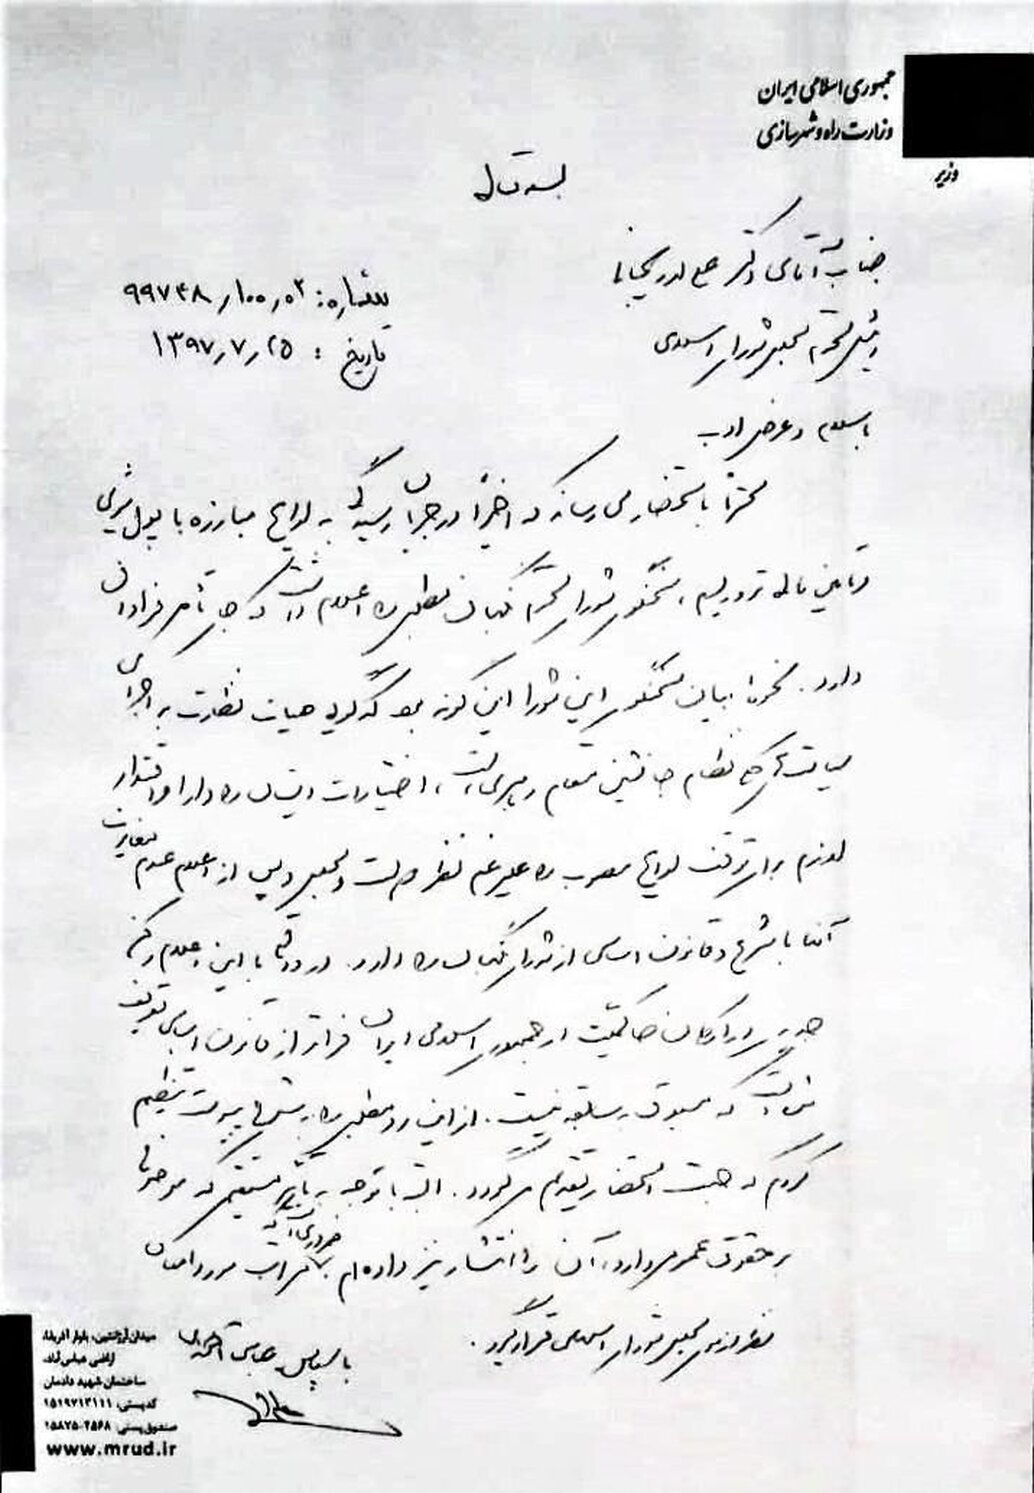 جمهوری اسلامی ایران
وزارت راه و شهرسازی
وزیر
بسمه تعالی
جناب آقای دکتر علی لاریجانی
شماره: ۰۲/۱۰۰/۹۹۷۴۸
رئیس محترم مجلس شورای اسلامی
تاریخ: ۱۳۹۷/۷/۲۵
با سلام و عرض ادب
محترماً باستحضار می رساند که اخیراً در جریان رسیدگی به لوایح مبارزه با پول شویی
و تامین مالی تروریسم، سخنگوی شورای محترم نگهبان مطلبی را اعلام داشت که جای تأمل فراوان
دارد. نحوه بیان سخنگوی این شورا این گونه بود که گویی هیات نظارت بر اجرای
سیاست های کلی نظام جانشین مقام رهبری است، اختیارات ایشان را دارا و اقتدار
لازم برای توقف لوایح مصوب را علیرغم نظر دولت و مجلس و پس از اعلام عدم مغایرت
آنها با شرع و قانون اساسی از شورای نگهبان را دارد. در واقع با این اعلام رکن
جدیدی از ارکان حاکمیت در جمهوری اسلامی ایران فراتر از قانون اساسی تعریف
شده است که مسبوق به سابقه نیست. از این رو مطلبی را به شرح پیوست تنظیم
کردم که جهت استحضار تقدیم می گردد. البته با توجه به تاثیر مستقیم که موضوع
بر حقوق عمومی دارد، آن را انتشار نیز داده ام ضروری است که مراتب مورد امعان
نظر رئیس مجلس شورای اسلامی قرار گیرد.
با سپاس عباس آخوندی
میدان آرژانتین، بلوار آفریقا،
اراضی عباس آباد،
ساختمان شهید دادمان
کدپستی: ۱۵۱۹۷۱۳۱۱۱
صندوق پستی: ۱۵۸۷۵-۳۵۶۸
www.mrud.ir